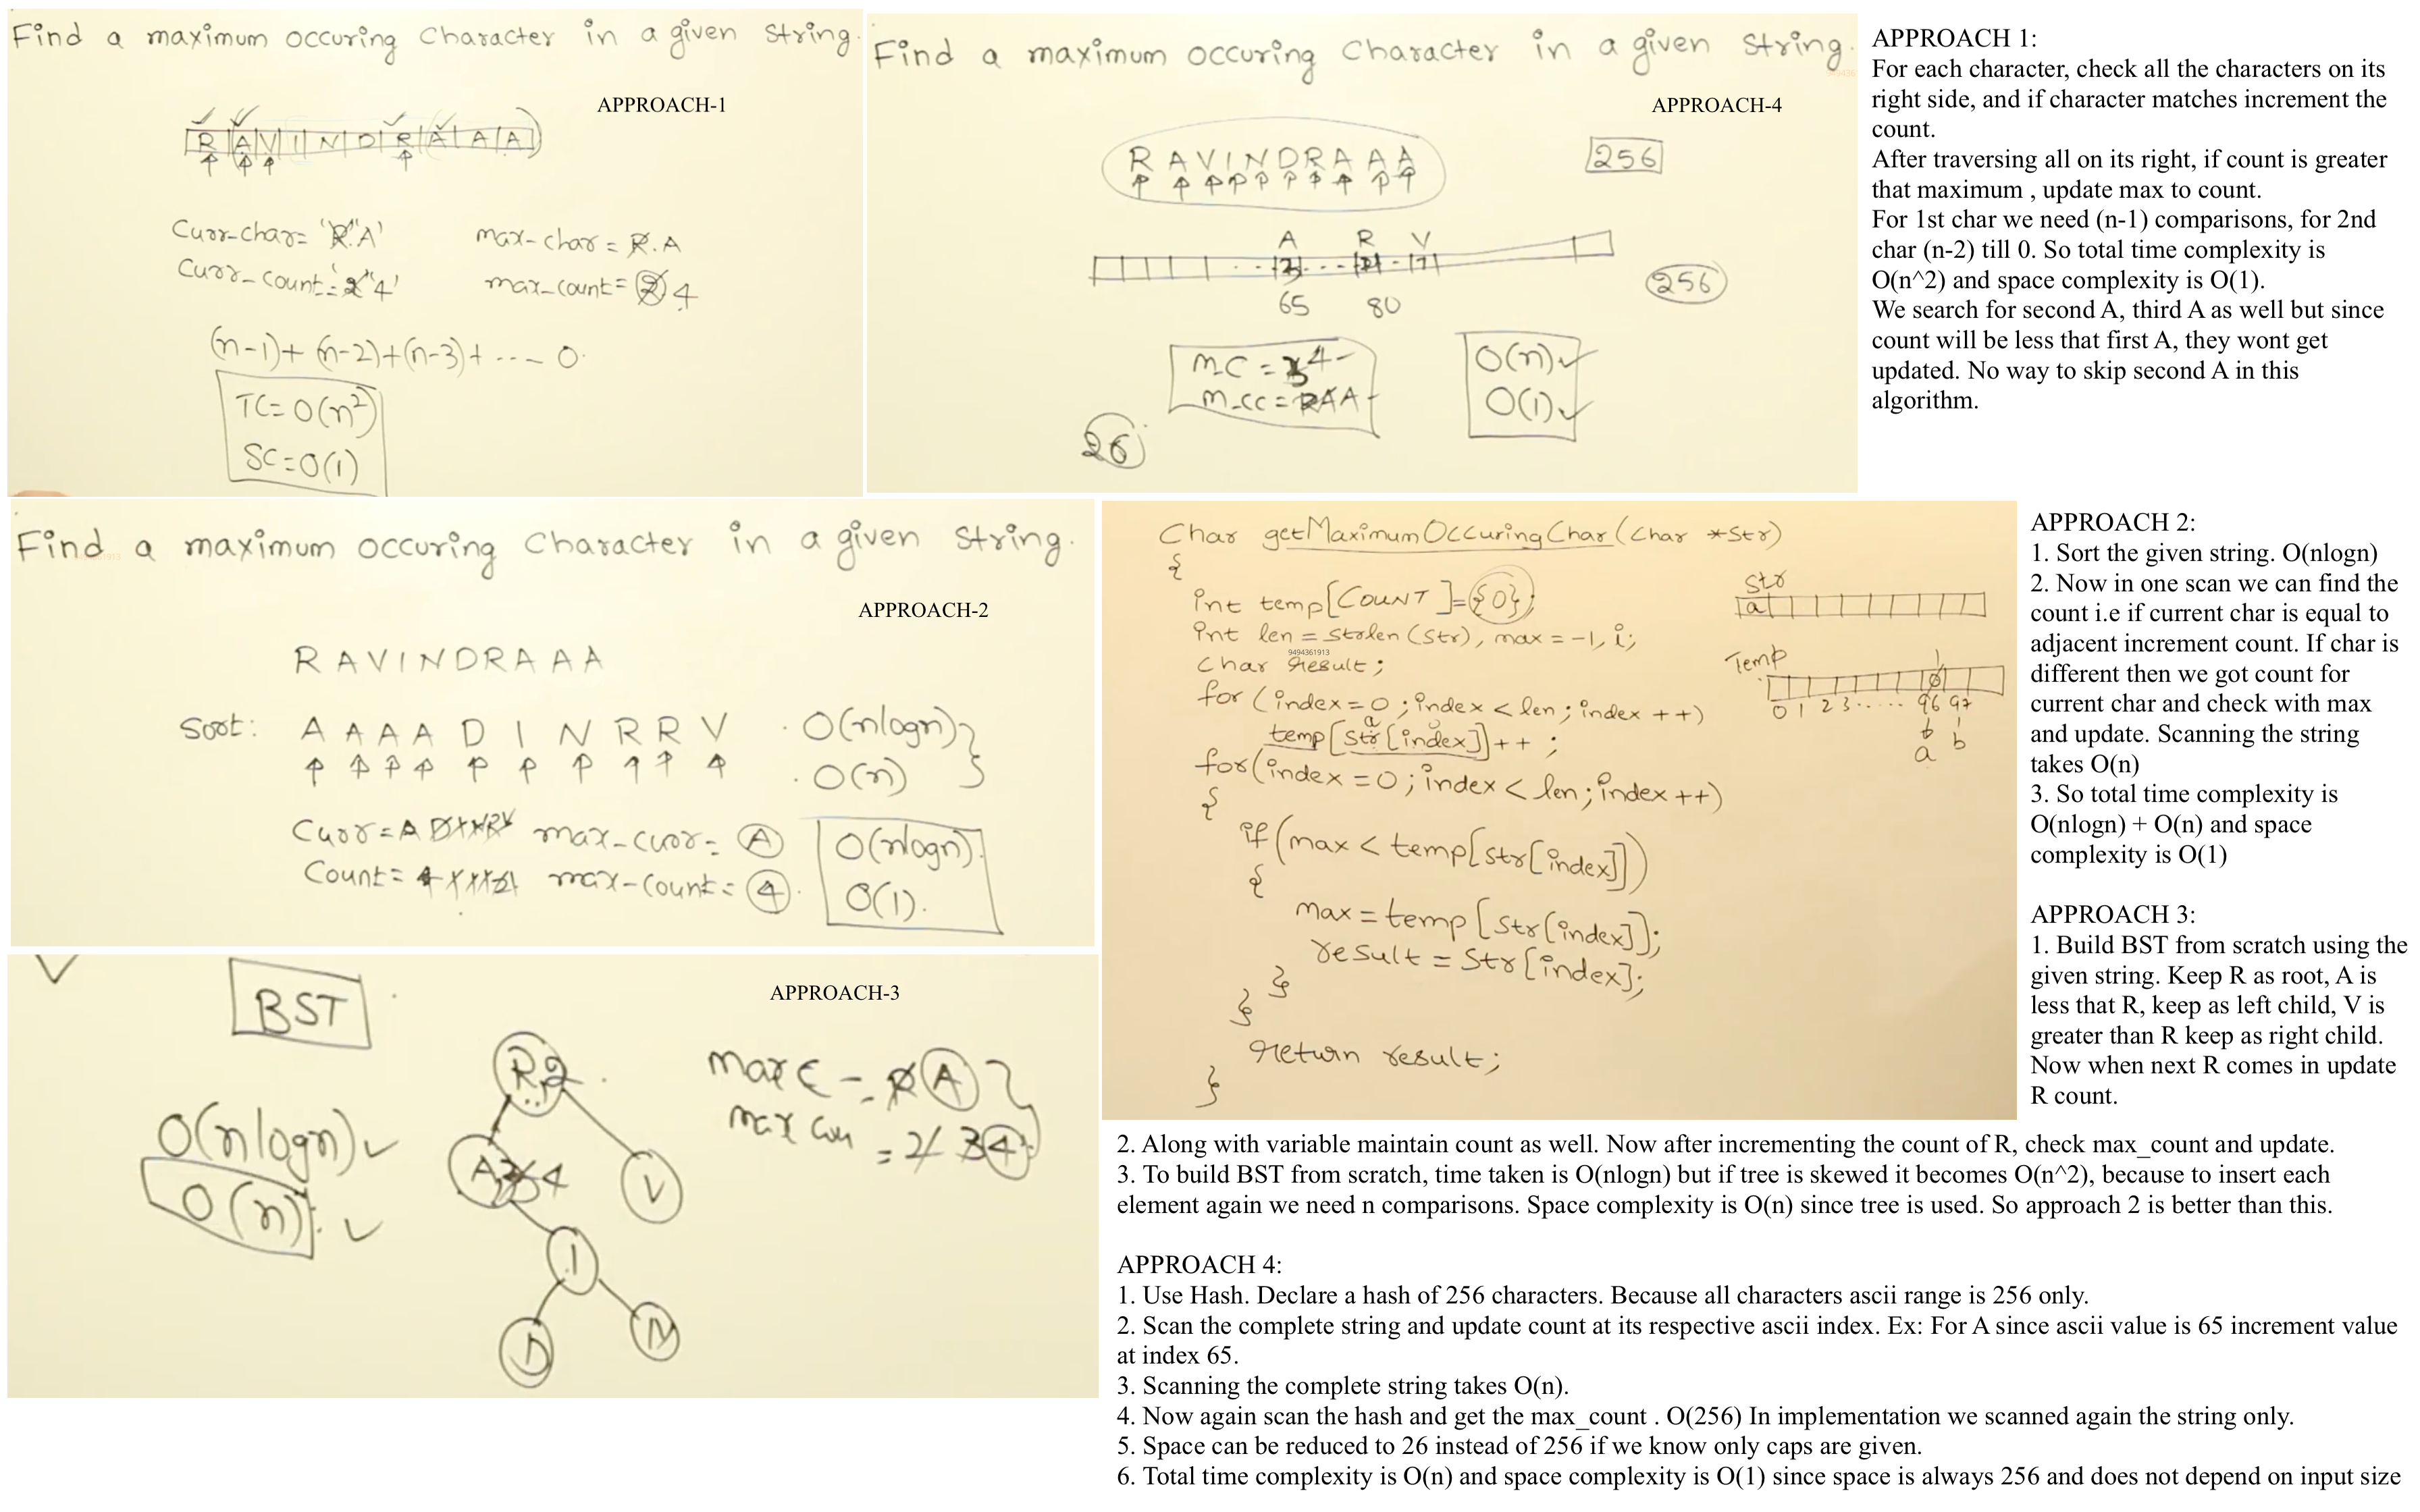 Find a maximum occuring Character in a given String.
APPROACH-1
R A V I N D R A A A
Curr-char= 'R' 'A'
max-char = R. A
Curr-count= 2 '4'
max-count= 2 4
(n-1)+(n-2)+(n-3)+ ---- 0.
TC=O(n²)
SC=O(1)
Find a maximum occuring Character in a given String.
APPROACH-4
R A V I N D R A A A
256
A R V
65 80
256
m-c = 4
m-cc = R A A
O(n)
O(1)
26
APPROACH 1:
For each character, check all the characters on its
right side, and if character matches increment the
count.
After traversing all on its right, if count is greater
that maximum , update max to count.
For 1st char we need (n-1) comparisons, for 2nd
char (n-2) till 0. So total time complexity is
O(n^2) and space complexity is O(1).
We search for second A, third A as well but since
count will be less that first A, they wont get
updated. No way to skip second A in this
algorithm.
Find a maximum occuring Character in a given String.
APPROACH-2
R A V I N D R A A A
Sort: A A A A D I N R R V
. O(nlogn)
. O(n)
Curr = A
max-curr= A
Count=
max-count= 4
O(nlogn).
O(1).
BST
APPROACH-3
O(nlogn)
O(n).
R 2
A 4
V
I
D
N
max c = R A
max cou = 2 3 4
Char getMaximumOccuringChar(Char *Str)
{
int temp[COUNT]={0};
int len = strlen(Str), max = -1, i;
9494361913
Char result;
for (index=0 ; index < len ; index ++)
temp[Str[index]]++ ;
for(index =0 ; index < len ; index ++)
{
if(max < temp[Str[index]])
{
max = temp[Str[index]];
result = Str[index];
}
}
return result;
}
Str
a
Temp
0 1 2 3 ..... 96 97
a b
APPROACH 2:
1. Sort the given string. O(nlogn)
2. Now in one scan we can find the
count i.e if current char is equal to
adjacent increment count. If char is
different then we got count for
current char and check with max
and update. Scanning the string
takes O(n)
3. So total time complexity is
O(nlogn) + O(n) and space
complexity is O(1)
APPROACH 3:
1. Build BST from scratch using the
given string. Keep R as root, A is
less that R, keep as left child, V is
greater than R keep as right child.
Now when next R comes in update
R count.
2. Along with variable maintain count as well. Now after incrementing the count of R, check max_count and update.
3. To build BST from scratch, time taken is O(nlogn) but if tree is skewed it becomes O(n^2), because to insert each
element again we need n comparisons. Space complexity is O(n) since tree is used. So approach 2 is better than this.
APPROACH 4:
1. Use Hash. Declare a hash of 256 characters. Because all characters ascii range is 256 only.
2. Scan the complete string and update count at its respective ascii index. Ex: For A since ascii value is 65 increment value
at index 65.
3. Scanning the complete string takes O(n).
4. Now again scan the hash and get the max_count . O(256) In implementation we scanned again the string only.
5. Space can be reduced to 26 instead of 256 if we know only caps are given.
6. Total time complexity is O(n) and space complexity is O(1) since space is always 256 and does not depend on input size